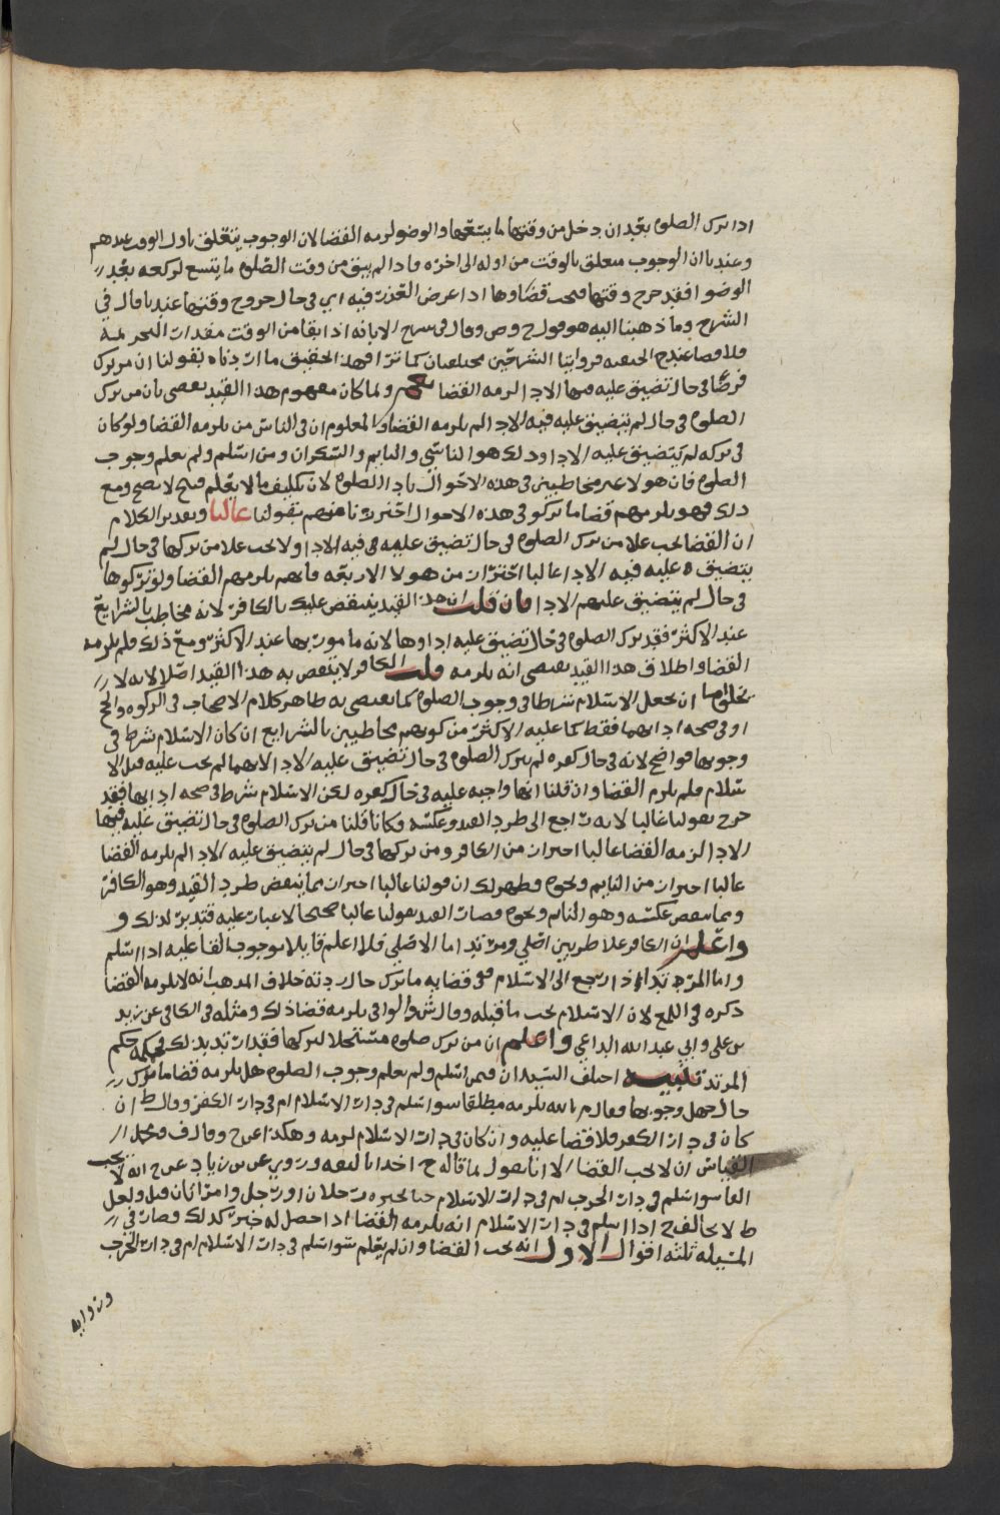 اذا ترك الصلوه بعد ان دخل من وقتها ما يتسعها والوضو لزمه القضا لان الوجوب يتعلق باول الوقت عندهم
وعندنا ان الوجوب متعلق بالوقت من اوله الى اخره واذا لم يبق من وقت الصلوه ما يتسع لركعه بعد
الوضو افقد خرج وقتها فيجب قضاوها اذا عرض العذر فيه اي في حال خروج وقتها عندنا قال في
الشرح وما ذهبنا اليه هو قول ح وص وقال في شرح الابانه اذا بقا من الوقت مقدار التحريمة
فلا قضا عند ح الحنفيه فروايتا الشرحين مختلفتان كما ترا فهذا تحقيق ما اردناه بقولنا ان من ترك
فرضا في حال تضيق عليه فيها الادا لزمه القضا نعم ولما كان مفهوم هذا القيد يقضي بان من ترك
الصلوه في حال لم يتضيق عليه فيه الادا لم يلزمه القضا والمعلوم ان في الناس من يلزمه القضا ولو كان
في تركه لم يتضيق عليه الادا وذلك هو الناسي والنايم والسكران ومن اسلم ولم يعلم وجوب
الصلوه فان هولا غير مخاطبين في هذه الاحوال بادا الصلوه لان تكليف ما لا يعلم قبيح لا يصح ومع
ذلك فهو يلزمهم قضا ما تركو في هذه الاحوال احترزنا منهم بقولنا غالبا وتقدير الكلام
ان القضا يجب علا من ترك الصلوه في حال تضيق عليه في فيه الادا ولا يجب علا من تركها في حال لم
يتضيق عليه فيه الادا غالبا احتراز من هولا الاربعه فانهم يلزمهم القضا ولو تركوها
في حال لم يتضيق عليهم الادا فان قلت ان هذا القيد ينتقض عليك بالكافر لانه مخاطب بالشرايع
عند الاكثر فقد ترك الصلوه في حال تضيق عليه اداوها لانه مامور بها عند الاكثر ومع ذلك فلم يلزمه
القضا واطلاق هذا القيد يقتضي انه يلزمه قلت الكافر لا ينتقض به هذا القيد اصلا لانه لا
يخلو اما ان نجعل الاسلام شرطا في وجوب الصلوه كما يقتضي به ظاهر كلام الاصحاب في الزكوه والحج
او في صحه ادايهما فقط كما عليه الاكثر من كونهم مخاطبين بالشرايع ان كان الاسلام شرط في
وجوبها فواضح لانه في حال كفره لم يترك الصلوه في حال تضيق عليه الادا لانها لم تجب عليه قبل الا
سلام فلم يلزم القضا وان قلنا انها واجبه عليه في حال كفره لكن الاسلام شرط في صحه ادايها فقد
خرج بقولنا غالبا لانه راجع الى طرد القيد وعكسه وكانا قلنا من ترك الصلوه في حال تضيق عليه فيها
الادا لزمه القضا غالبا احتراز من الكافر ومن تركها في حال لم يتضيق عليه الادا لم يلزمه القضا
غالبا احتراز من النايم ونحوه فظهر لك ان قولنا غالبا احتراز مما ينقض طرد القيد وهو الكافر
ومما ينقض عكسه وهو النايم ونحوه فصار القيد بقولنا غالبا صحيحا لا غبار عليه فتدبر لذلك و
واعلم ان الكافر علا ضربين اصلي ومرتد اما الاصلي فلا اعلم قايلا بوجوب القضا عليه اذا اسلم
واما المرتد اذا رجع الى الاسلام ففي قضايه ما ترك حال ردته خلاف المذهب انه لا يلزمه القضا
ذكره في اللمع لان الاسلام يجب ما قبله وقال ش والوافي يلزمه قضا ذلك ومثله في الكافي عن زيد
بن علي وابي عبد الله الداعي واعلم ان من ترك صلوه مستحلا لتركها فقد ارتد بذلك فحكمه حكم
المرتد تنبيه اختلف السيدان فيمن اسلم ولم يعلم وجوب الصلوه هل يلزمه قضا ما ترك
حال جهل وجوبها فقال م بالله يلزمه مطلقا سوا اسلم في دار الاسلام ام في دار الكفر وقال ط ان
كان في دار الكفر فلا قضا عليه وان كان في دار الاسلام لزمه وهكذا عن ح وقال ف ومحمد الا
القياس ان لا يجب القضا الا انا نقول بما قاله ح اخذا بالثقه وروي عن بن زياد عن ح انه لا يجب
القضا سوا اسلم في دار الحرب ام في دار الاسلام حتا يخبره رجلان او رجل وامراتان قيل ولعل
ط لا يخالف ح اذا اسلم في دار الاسلام انه يلزمه القضا اذا حصل له خبر كذلك فصار في
المسيله ثلثه اقوال الاول انه يجب القضا وان لم يعلم سوا اسلم في دار الاسلام ام في دار الحرب
ورواية